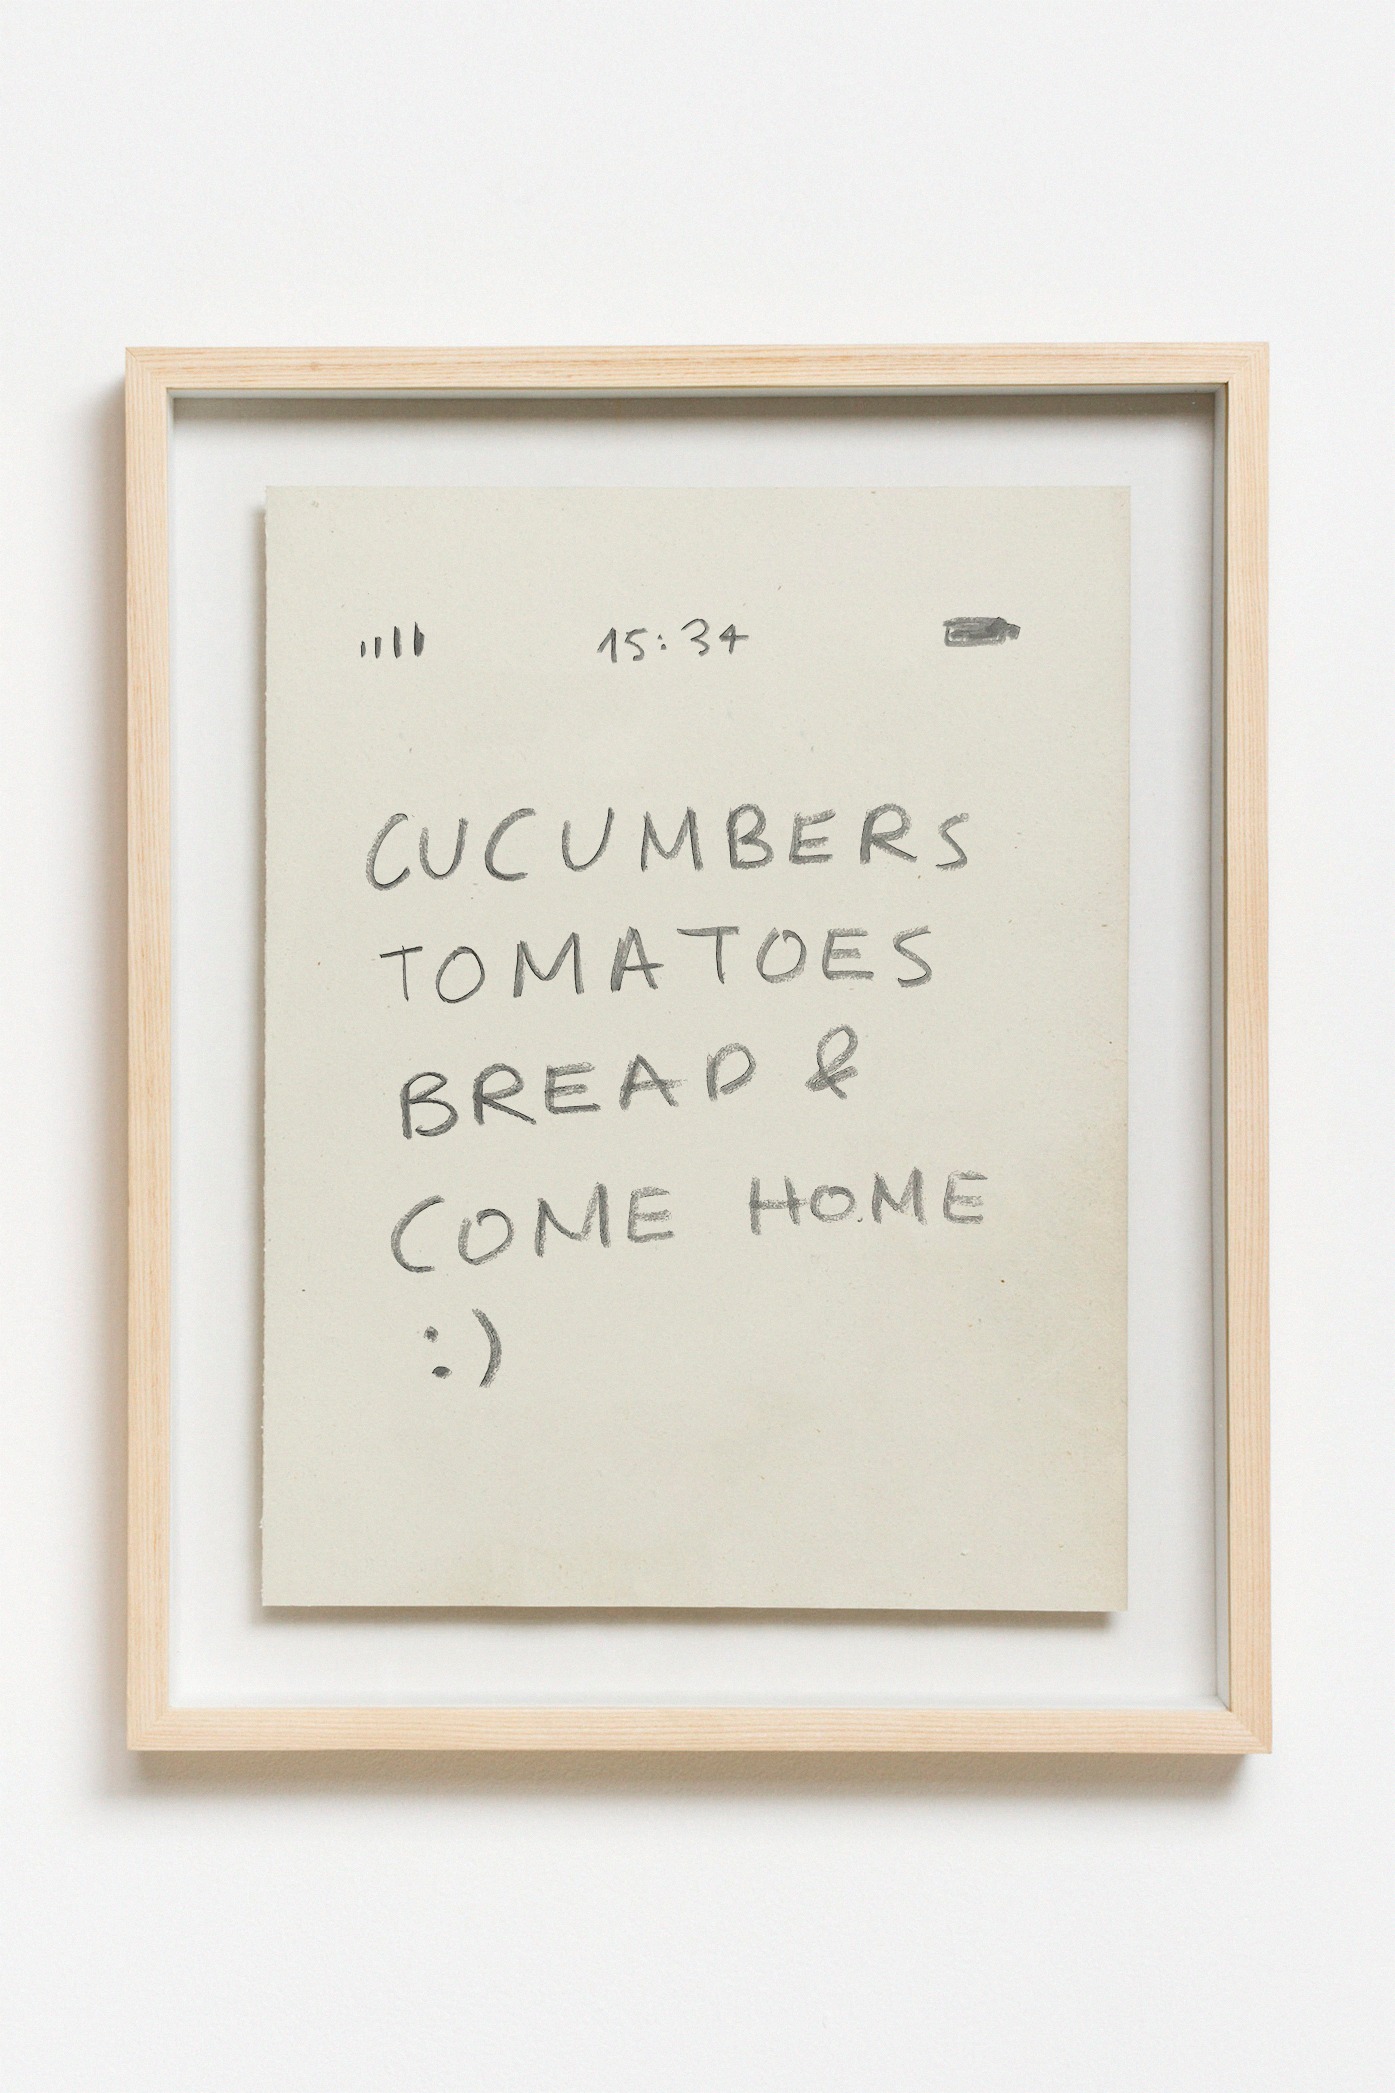 15:34
CUCUMBERS
TOMATOES
BREAD &
COME HOME
:)